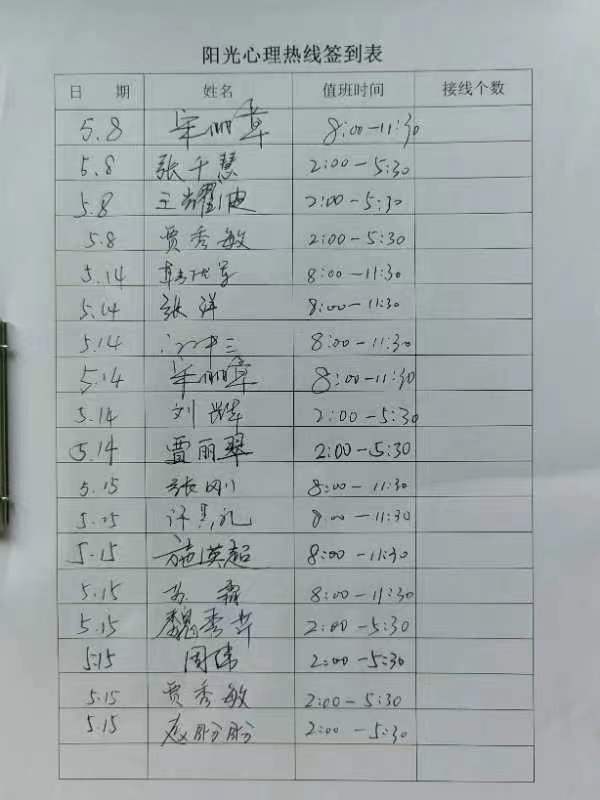 阳光心理热线签到表
日 期 姓名 值班时间 接线个数
5.8 宋丽 8:00-11:30
5.8 张千慧 2:00-5:30
5.8 王耀迪 2:00-5:30
5.8 贾秀敏 2:00-5:30
5.14 8:00-11:30
5.14 张洋 8:00-11:30
5.14 8:00-11:30
5.14 宋丽 8:00-11:30
5.14 刘 2:00-5:30
5.14 贾丽翠 2:00-5:30
5.15 张刚 8:00-11:30
5.15 许 礼 8:00-11:30
5.15 施英超 8:00-11:30
5.15 苏霜 8:00-11:30
5.15 魏秀芳 2:00-5:30
5.15 周伟 2:00-5:30
5.15 贾秀敏 2:00-5:30
5.15 赵盼盼 2:00-5:30